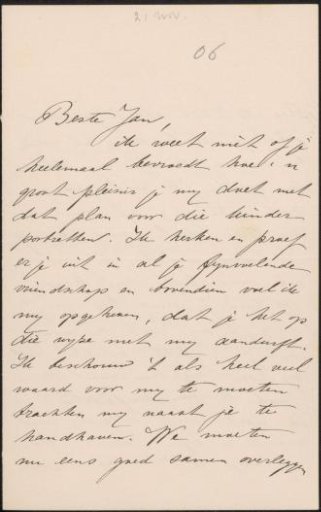 21 Nov.
06
Beste Jan,
ik weet niet of je
heelemaal bevroedt hoe'n
groot pleisir je my doet met
dat plan voor die kinder
portretten. Ik herken en proef
er je uit in al je fynvoelende
vriendschap en bovendien voel ik
my opgeheven, dat je het op
die wyze met my aandurft.
Ik beschouw 't als heel veel
waard voor my te moeten
trachten my naast je te
handhaven. We moeten
nu eens goed samen overleggen